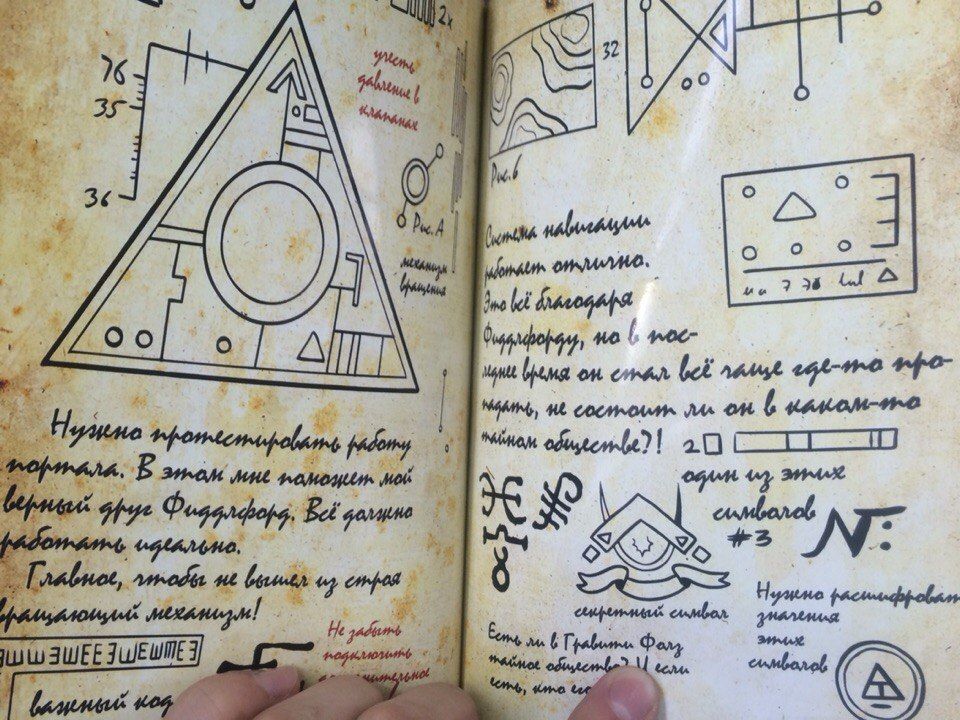 2х
учесть
давление в
клапанах
76
35
36
Рис. А
механизм
вращения
Нужно протестировать работу
портала. В этом мне поможет мой
верный друг Фиддлфорд. Всё должно
работать идеально.
Главное, чтобы не вышел из строя
вращающий механизм!
Не забыть
подключить
важный код
32
Рис. Б
Система навигации
работает отлично.
Это всё благодаря
Фиддлфорду, но в пос-
леднее время он стал всё чаще где-то про-
падать, не состоит ли он в каком-то
тайном обществе?!
2
один из этих
символов
#3
секретный символ
Есть ли в Гравити Фолз
тайное общество? И если
есть, кто его
Нужно расшифровать
значения
этих
символов